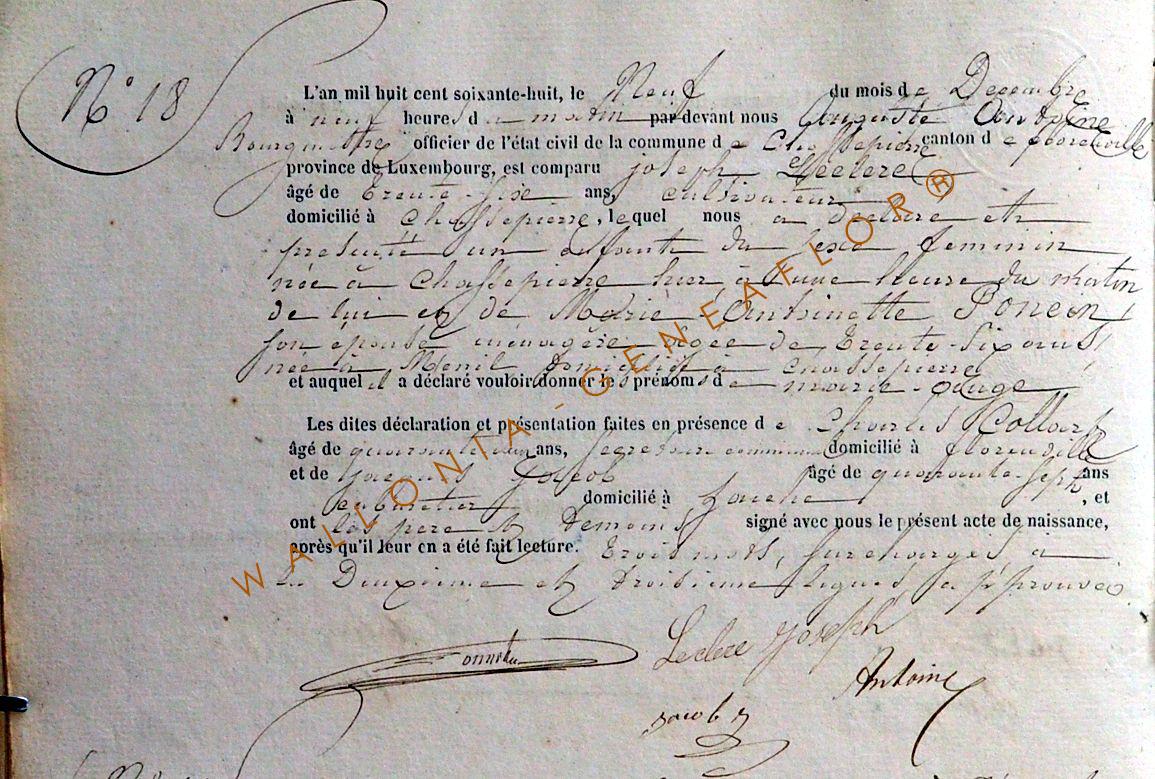 N° 18
L'an mil huit cent soixante-huit, le Neuf du mois de Decembre
à neuf heures du matin par devant nous Auguste Antoine
Bourgmestre officier de l'état civil de la commune de Chassepierre canton de florenville
province de Luxembourg, est comparu joseph Leclere
âgé de trente-six ans, cultivateur
domicilié à Chassepierre, lequel nous a declaré et
presenté un enfant du sexe feminin
née à Chassepierre hier à une heure du matin
de lui et de Marie Antoinette Poncin
son épouse ménagère agée de trente-six ans
née à Menil domiciliée à Chassepierre
et auquel il a déclaré vouloir donner les prénoms de marie-
Les dites déclaration et présentation faites en présence de Charles Collart
âgé de quarante ans, secretaire communal domicilié à florenville
et de Jacob âgé de quarante-sept ans
domicilié à , et
ont les pere et temoins signé avec nous le présent acte de naissance,
après qu'il leur en a été fait lecture. trois mots surchargés à
la Deuxieme et troisieme lignes approuvés
Leclere Joseph
Antoine
Jacob J
WALLONIA-GENEAFLOR®